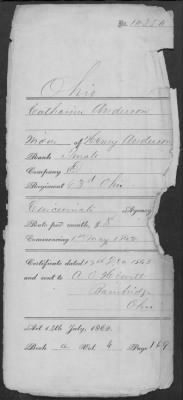 No. 10,256
Ohio
Catharine Anderson
Widow of Henry Anderson
Rank Private
Company
Regiment 63d Ohio
Cincinnati Agency
Rate per month, $8
Commencing 1st May 1862
Certificate dated 19th Dec 1863
and sent to A. C. Hewitt
Bainbridge
Ohio
Act 14th July, 1862.
Book a Vol. 4 Page 169